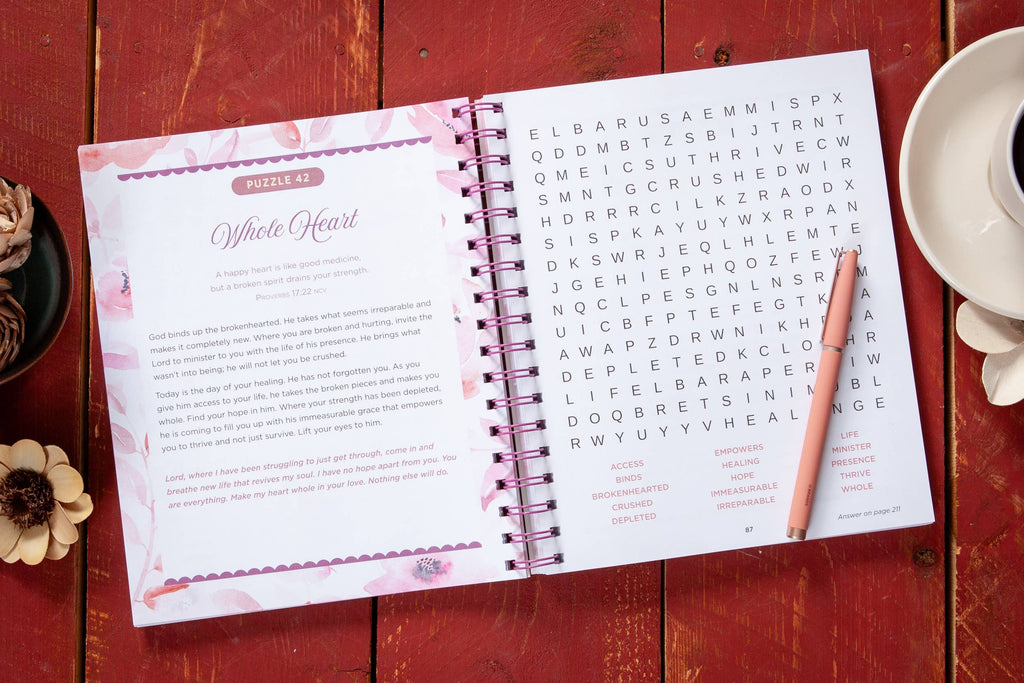 PUZZLE 42
Whole Heart
A happy heart is like good medicine,
but a broken spirit drains your strength.
PROVERBS 17:22 NCV
God binds up the brokenhearted. He takes what seems irreparable and
makes it completely new. Where you are broken and hurting, invite the
Lord to minister to you with the life of his presence. He brings what
wasn't into being; he will not let you be crushed.
Today is the day of your healing. He has not forgotten you. As you
give him access to your life, he takes the broken pieces and makes you
whole. Find your hope in him. Where your strength has been depleted,
he is coming to fill you up with his immeasurable grace that empowers
you to thrive and not just survive. Lift your eyes to him.
Lord, where I have been struggling to just get through, come in and
breathe new life that revives my soul. I have no hope apart from you. You
are everything. Make my heart whole in your love. Nothing else will do.
E L B A R U S A E M M I S P X
Q D D M B T Z S B I J T R N T
Q M E I C S U T H R I V E C W
S M N T G C R U S H E D W I R
H D R R R C I L K Z R A O D X
S I S P K A Y U Y W X R P A N
D K S W R J E Q L H L E M T E
J G E H I E P H Q O Z F E W J
N Q C L P E S G N L N S R M
U I C B F P T E F E G T K A
A W A P Z D R W N I K H A
D E P L E T E D K C L O H R
L I F E L B A R A P E R W
D O Q B R E T S I N I M U B L
R W Y U Y Y V H E A L I N G E
ACCESS
BINDS
BROKENHEARTED
CRUSHED
DEPLETED
EMPOWERS
HEALING
HOPE
IMMEASURABLE
IRREPARABLE
LIFE
MINISTER
PRESENCE
THRIVE
WHOLE
87
Answer on page 211